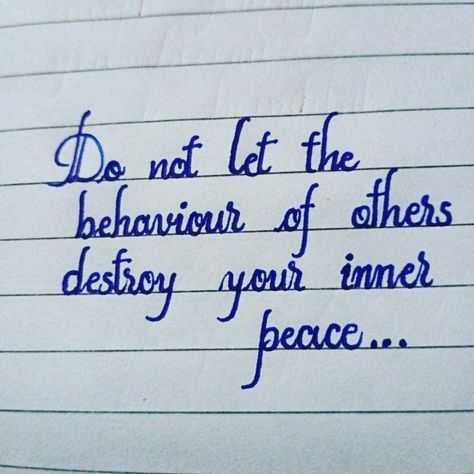 Do not let the
behaviour of others
destroy your inner
peace...